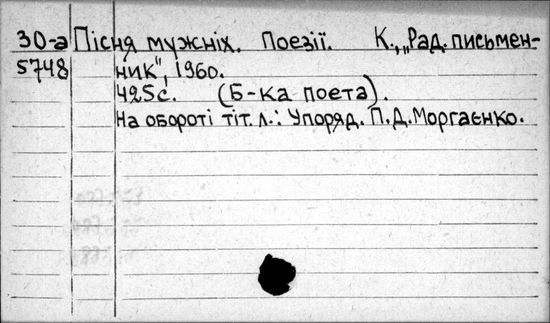 30-а Пісня мужніх. Поезії. К., „Рад. письмен-
5748 ник", 1960.
425с. (Б-ка поета).
На обороті тіт. л.: Упоряд. П.Д. Моргаєнко.